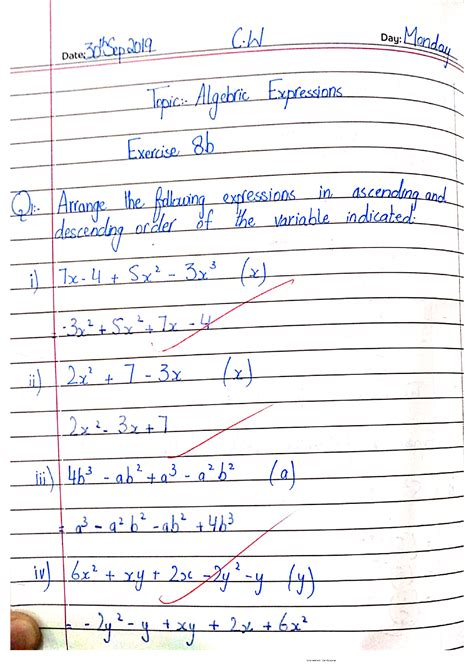 Date: 30th Sep 2019 C.W Day: Monday
Topic:- Algebric Expressions
Exercise 8b
Q1:- Arrange the following expressions in ascending and
descending order of the variable indicated:
i) 7x - 4 + 5x² - 3x³ (x)
-3x² + 5x² + 7x - 4
ii) 2x² + 7 - 3x (x)
2x² - 3x + 7
iii) 4b³ - ab² + a³ - a²b² (a)
= a³ - a²b² - ab² + 4b³
iv) 6x² + xy + 2x - 2y² - y (y)
= - 2y² - y + xy + 2x + 6x²